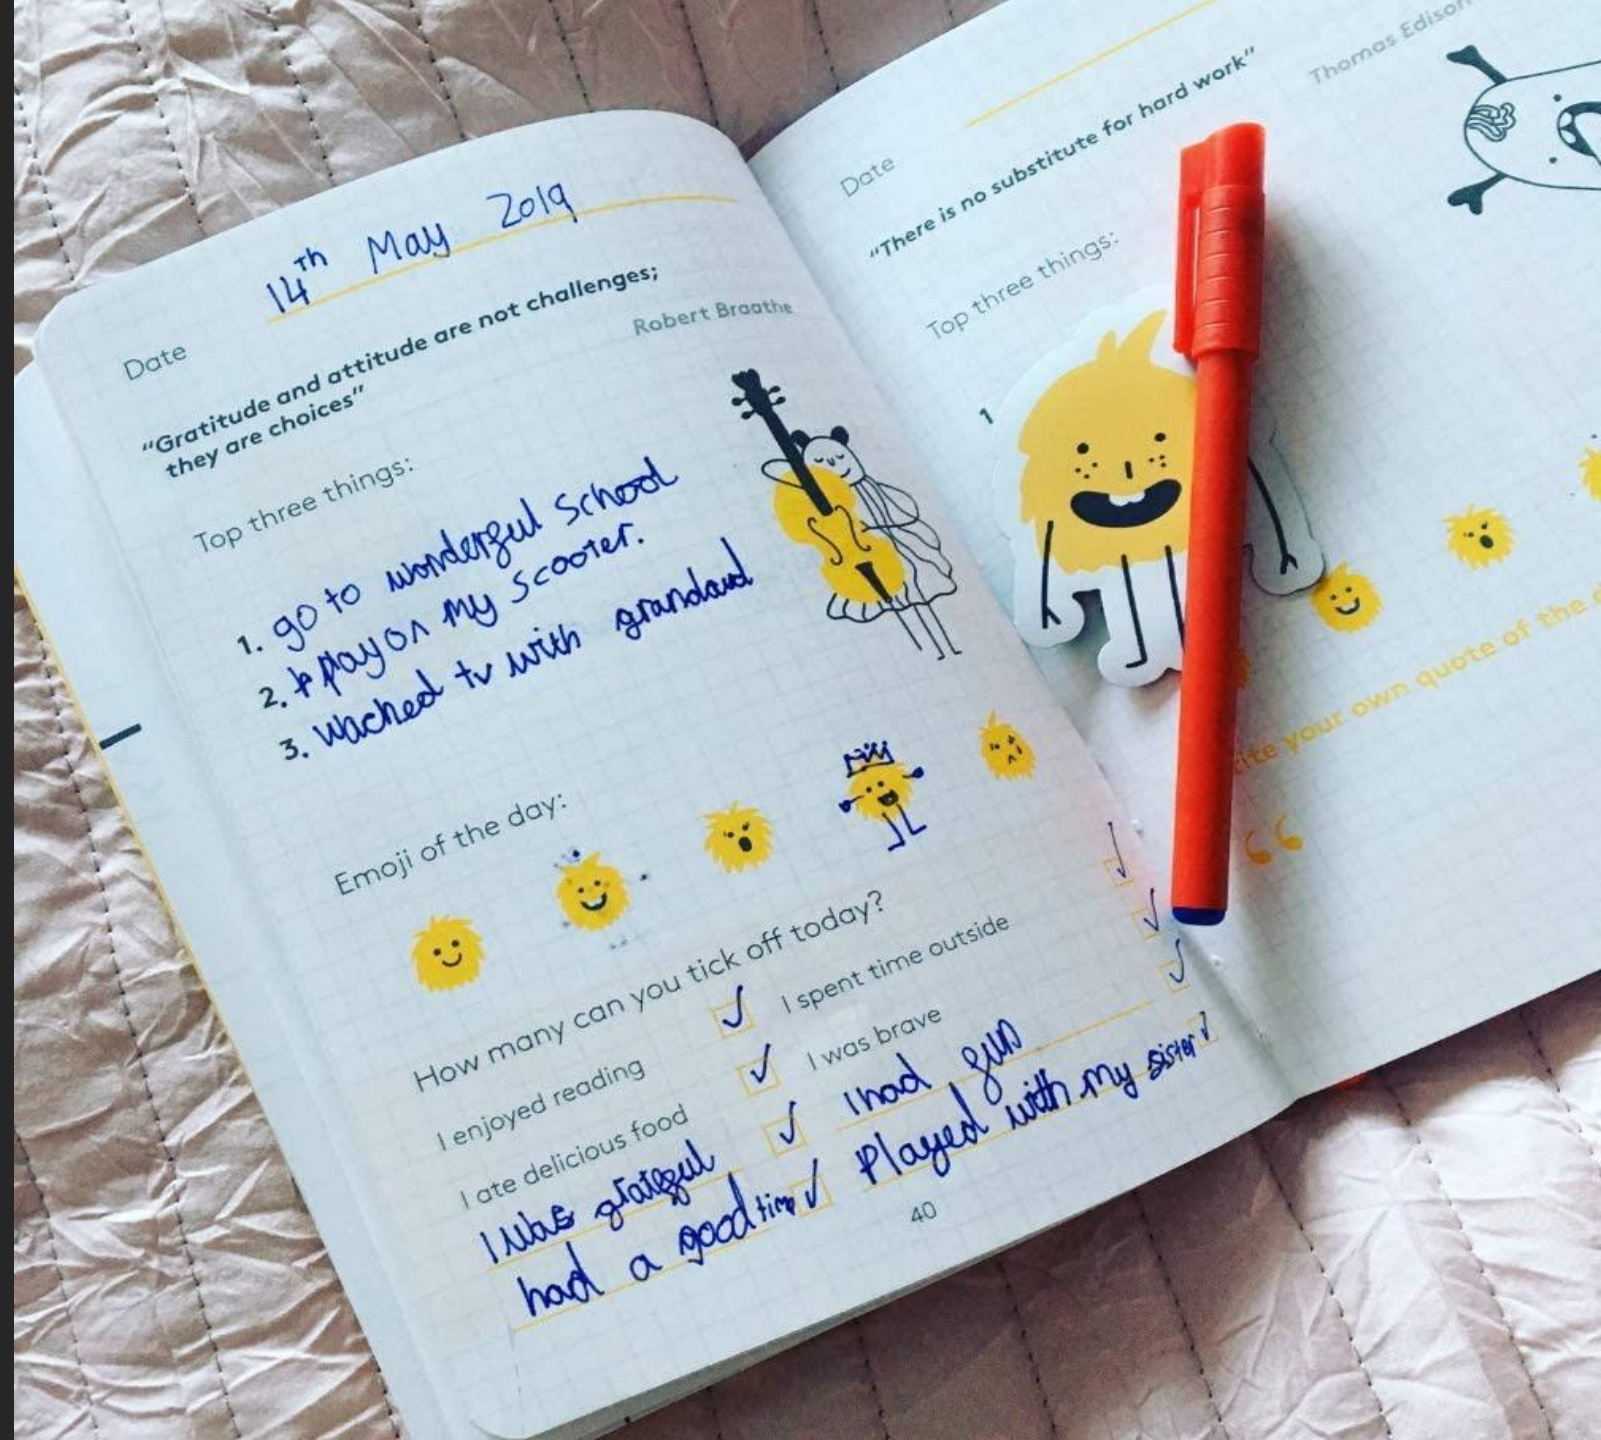 14th May 2019
Date
"Gratitude and attitude are not challenges;
they are choices"
Robert Braathe
Top three things:
1. go to wonderful school
2. play on my scooter.
3. wached tv with grandad
Emoji of the day:
How many can you tick off today?
I enjoyed reading ✓ I spent time outside ✓
I ate delicious food ✓ I was brave ✓
I was grateful ✓ I had fun ✓
had a good time ✓ Played with my sister ✓
40
Date
"There is no substitute for hard work"
Thomas Edison
Top three things:
1
your own quote of the
“